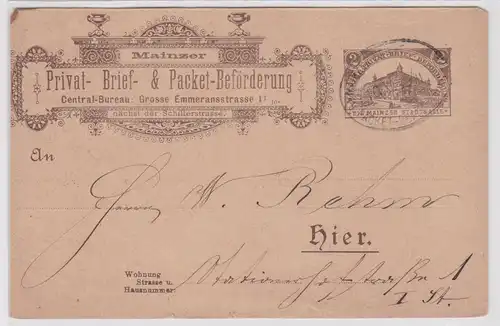 Mainzer
Privat- Brief- & Packet-Beförderung
Central-Bureau: Grosse Emmeransstrasse
nächst der Schillerstrasse.
2 2
An
Herrn W. Rehm
Hier.
Wohnung
Strasse u.
Hausnummer
1
I St.